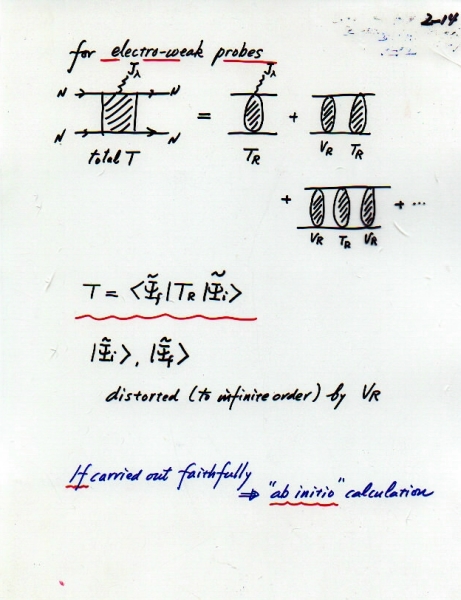 2-14
for electro-weak probes
J_λ J_λ
N N = +
N N
total T T_R V_R T_R
+ + ...
V_R T_R V_R
T = <Ψ̃_f|T_R|Ψ̃_i>
|Ψ̃_i>, |Ψ̃_f>
distorted (to infinite order) by V_R
If carried out faithfully
⇒ "ab initio" calculation